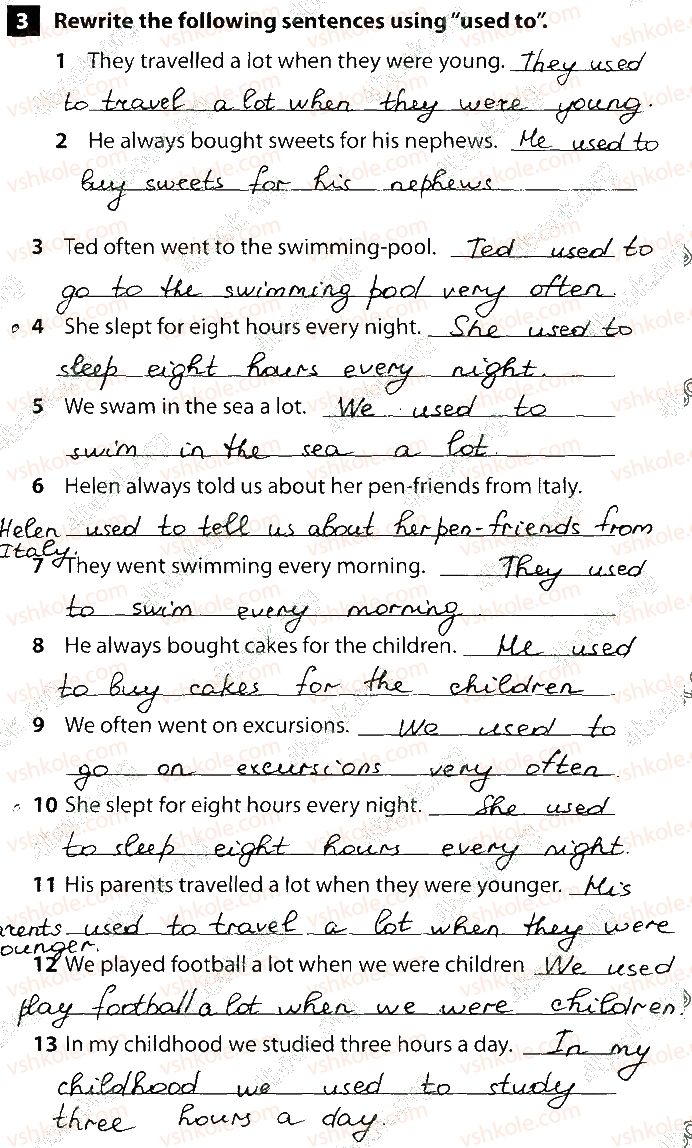 3 Rewrite the following sentences using "used to".
1 They travelled a lot when they were young. They used
to travel a lot when they were young.
2 He always bought sweets for his nephews. He used to
buy sweets for his nephews
3 Ted often went to the swimming-pool. Ted used to
go to the swimming pool very often.
4 She slept for eight hours every night. She used to
sleep eight hours every night.
5 We swam in the sea a lot. We used to
swim in the sea a lot.
6 Helen always told us about her pen-friends from Italy.
Helen used to tell us about her pen-friends from
Italy.
7 They went swimming every morning. They used
to swim every morning
8 He always bought cakes for the children. He used
to buy cakes for the children
9 We often went on excursions. We used to
go on excursions very often.
10 She slept for eight hours every night. She used
to sleep eight hours every night.
11 His parents travelled a lot when they were younger. His
arents used to travel a lot when they were
ounger.
12 We played football a lot when we were children We used
play football a lot when we were children.
13 In my childhood we studied three hours a day. In my
childhood we used to study
three hours a day.
vshkole.com